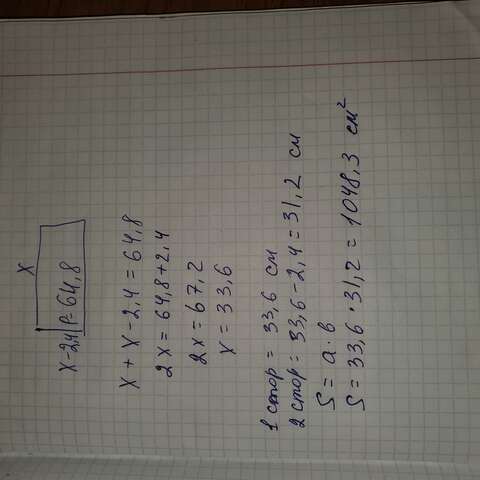 x
x-2,4 P=64,8
x + x - 2,4 = 64,8
2x = 64,8 + 2,4
2x = 67,2
x = 33,6
1 стор = 33,6 см
2 стор = 33,6 - 2,4 = 31,2 см
S = a · b
S = 33,6 · 31,2 = 1048,3 см²